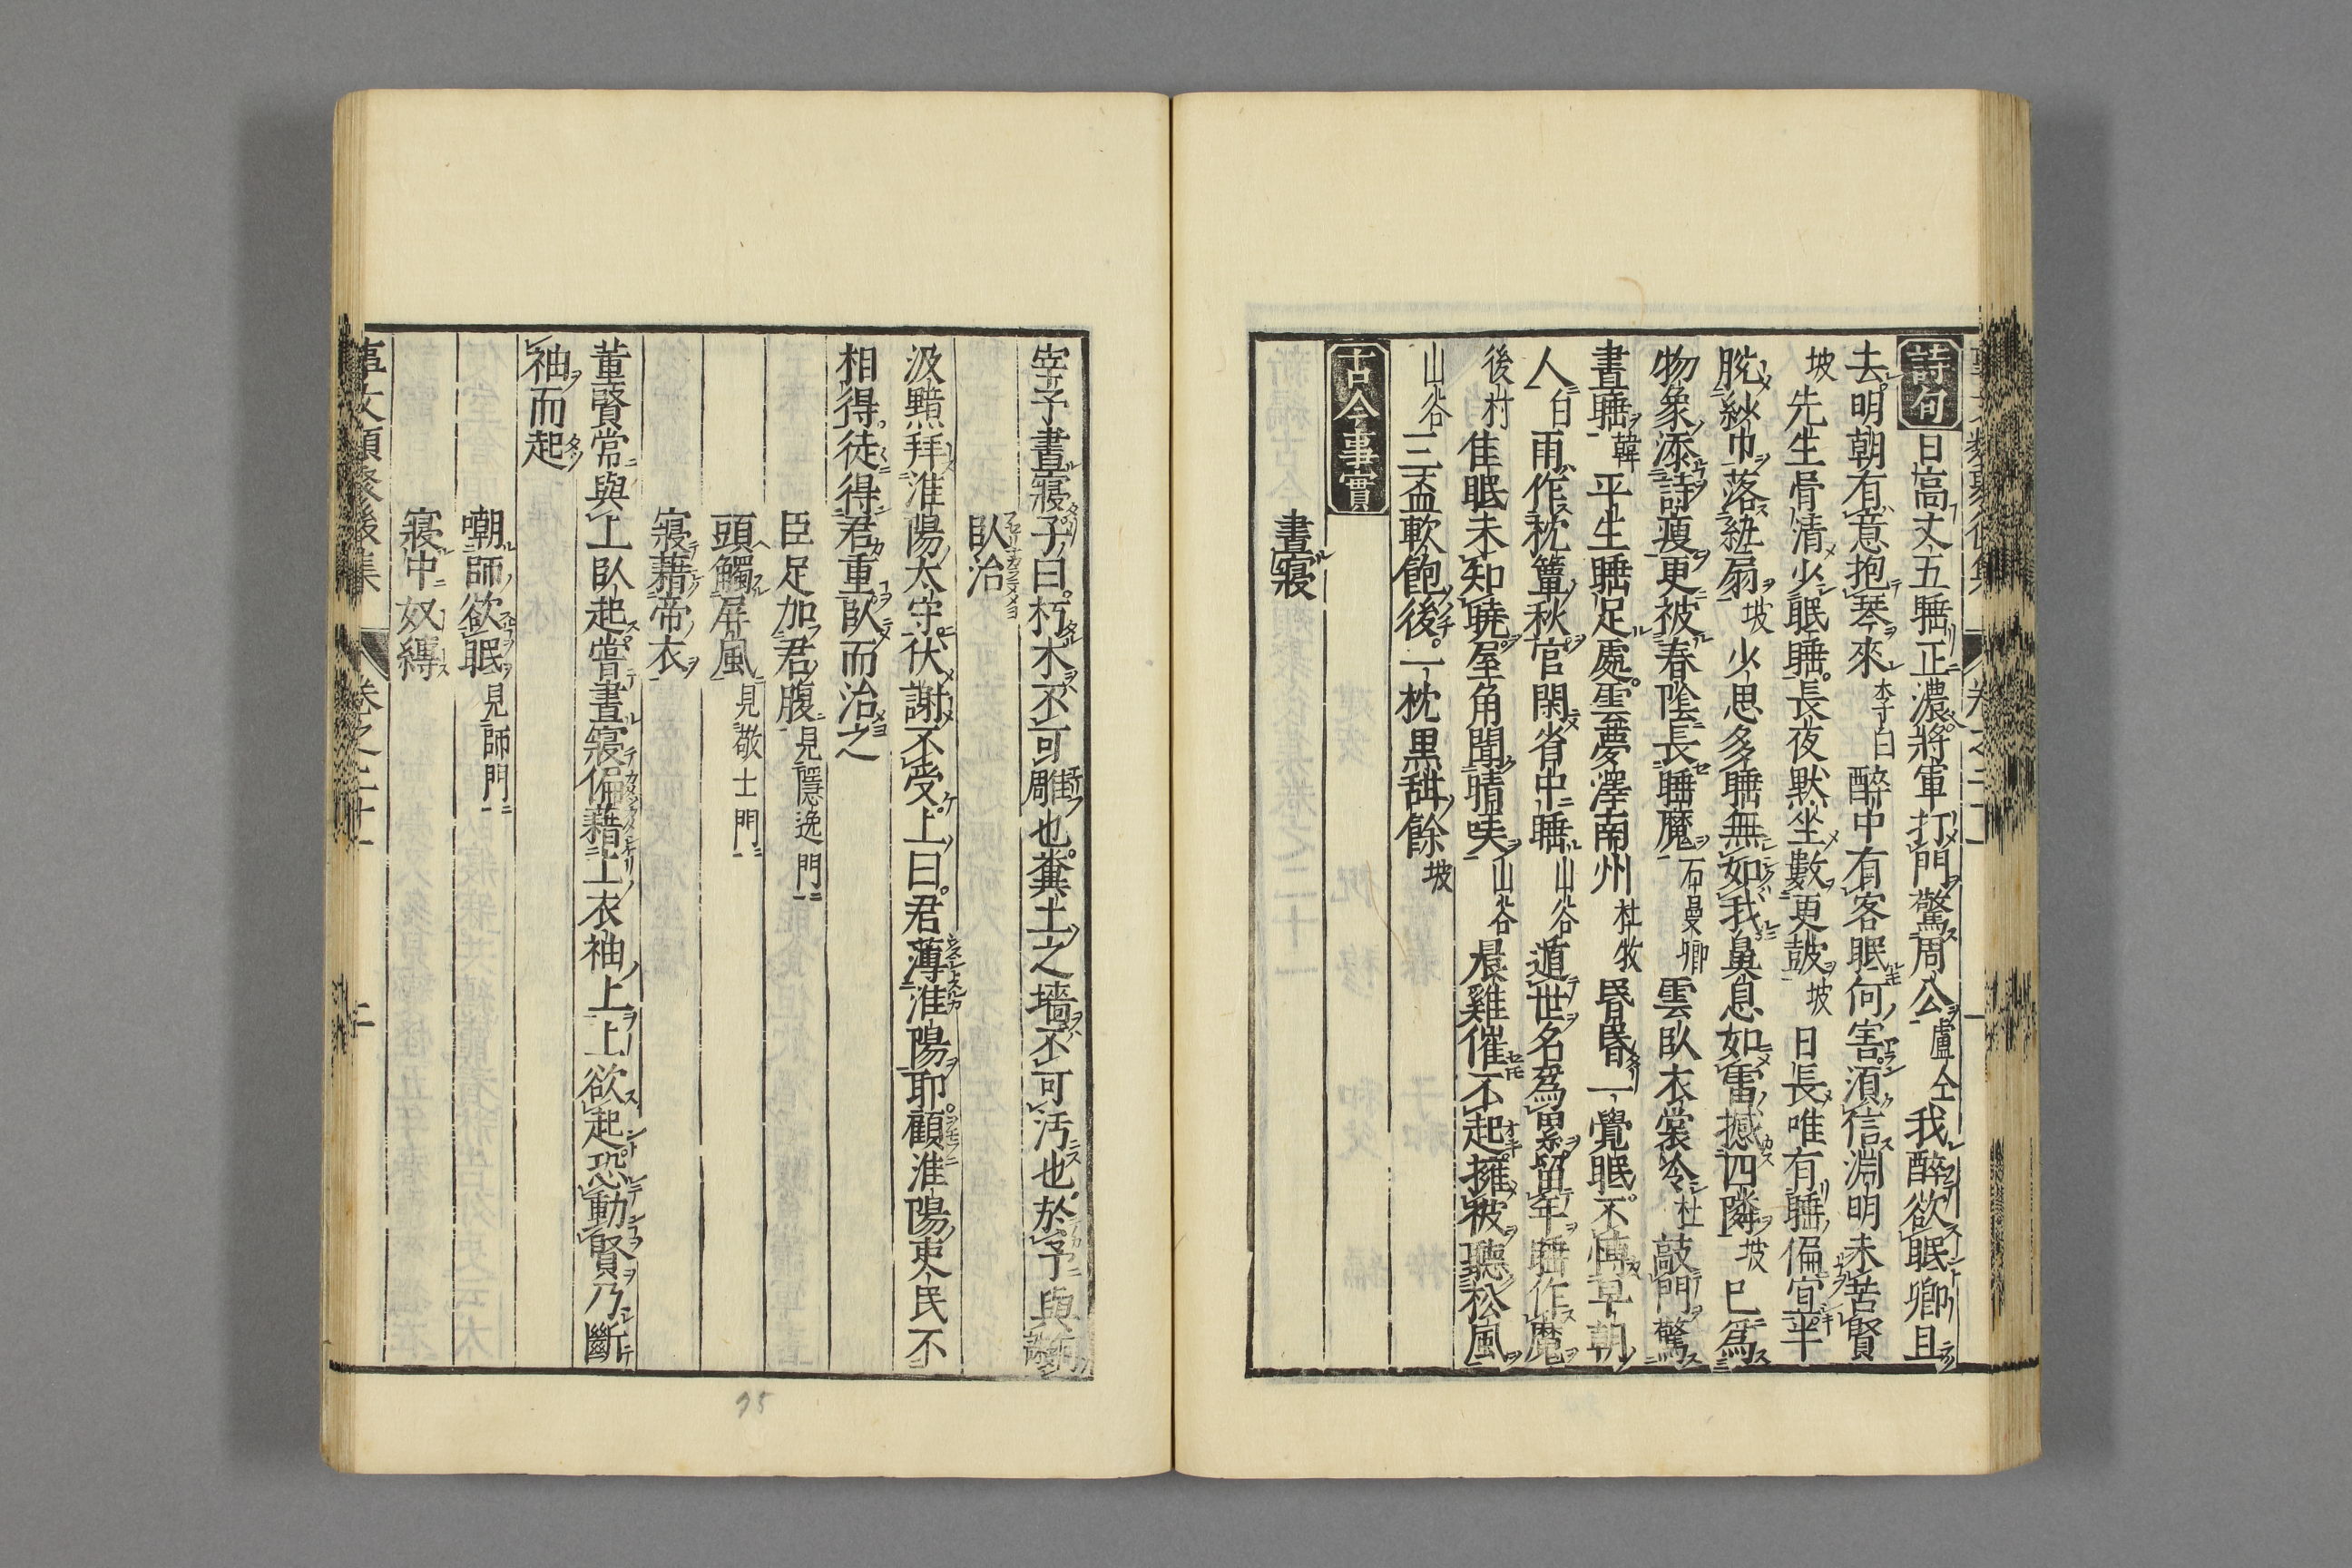 詩句 日高丈五睡正濃將軍打門驚周公盧仝我醉欲眠卿且
去明朝有意抱琴來李白醉中有客眠何害須信淵明未苦賢
坡先生骨清少眠睡長夜默坐數更皷坡日長唯有睡偏宜半
脫紗巾落紈扇坡少思多睡無如我鼻息如雷撼四隣坡已爲
物象添詩瘦更被春陰長睡魔石曼卿雲臥衣裳冷杜敲門驚
晝睡韓平生睡足處雲夢澤南州杜牧昏昏一覺眠不愽早朝
人白雨作枕簟秋官閑省中睡山谷遁世名爲累留年睡作魔
後村隹眠未知曉屋角聞晴哢山谷晨雞催不起擁被聽松風
山谷三盃軟飽後一枕黑甜餘坡
古今事實
晝寢
宰予晝寢子曰朽木不可雕也糞土之墻不可汚也於予與
臥治
汲黯拜淮陽太守伏謝不受上曰君薄淮陽耶顧淮陽吏民不
相得徒得君重臥而治之
臣足加君腹見隱逸門
頭觸屏風見敬士門
寢藉帝衣
董賢常與上臥起嘗晝寢偏藉上衣袖上上欲起恐動賢乃斷
袖而起
嘲師欲眠見師門
寢中奴縛
事文類聚後集 卷之二十一 二